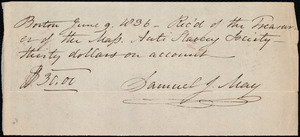 Boston June 9. 1836 - Rec'd of the Treasur-
er of the Mass. Anti Slavery Society
thirty dollars on account
$30.00
Samuel J. May